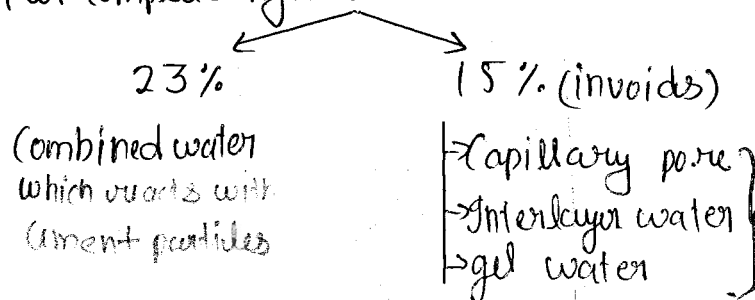 23% 15% (invoids)
Combined water
which reacts with
Cement particles
Capillary pore
Interlayer water
gel water